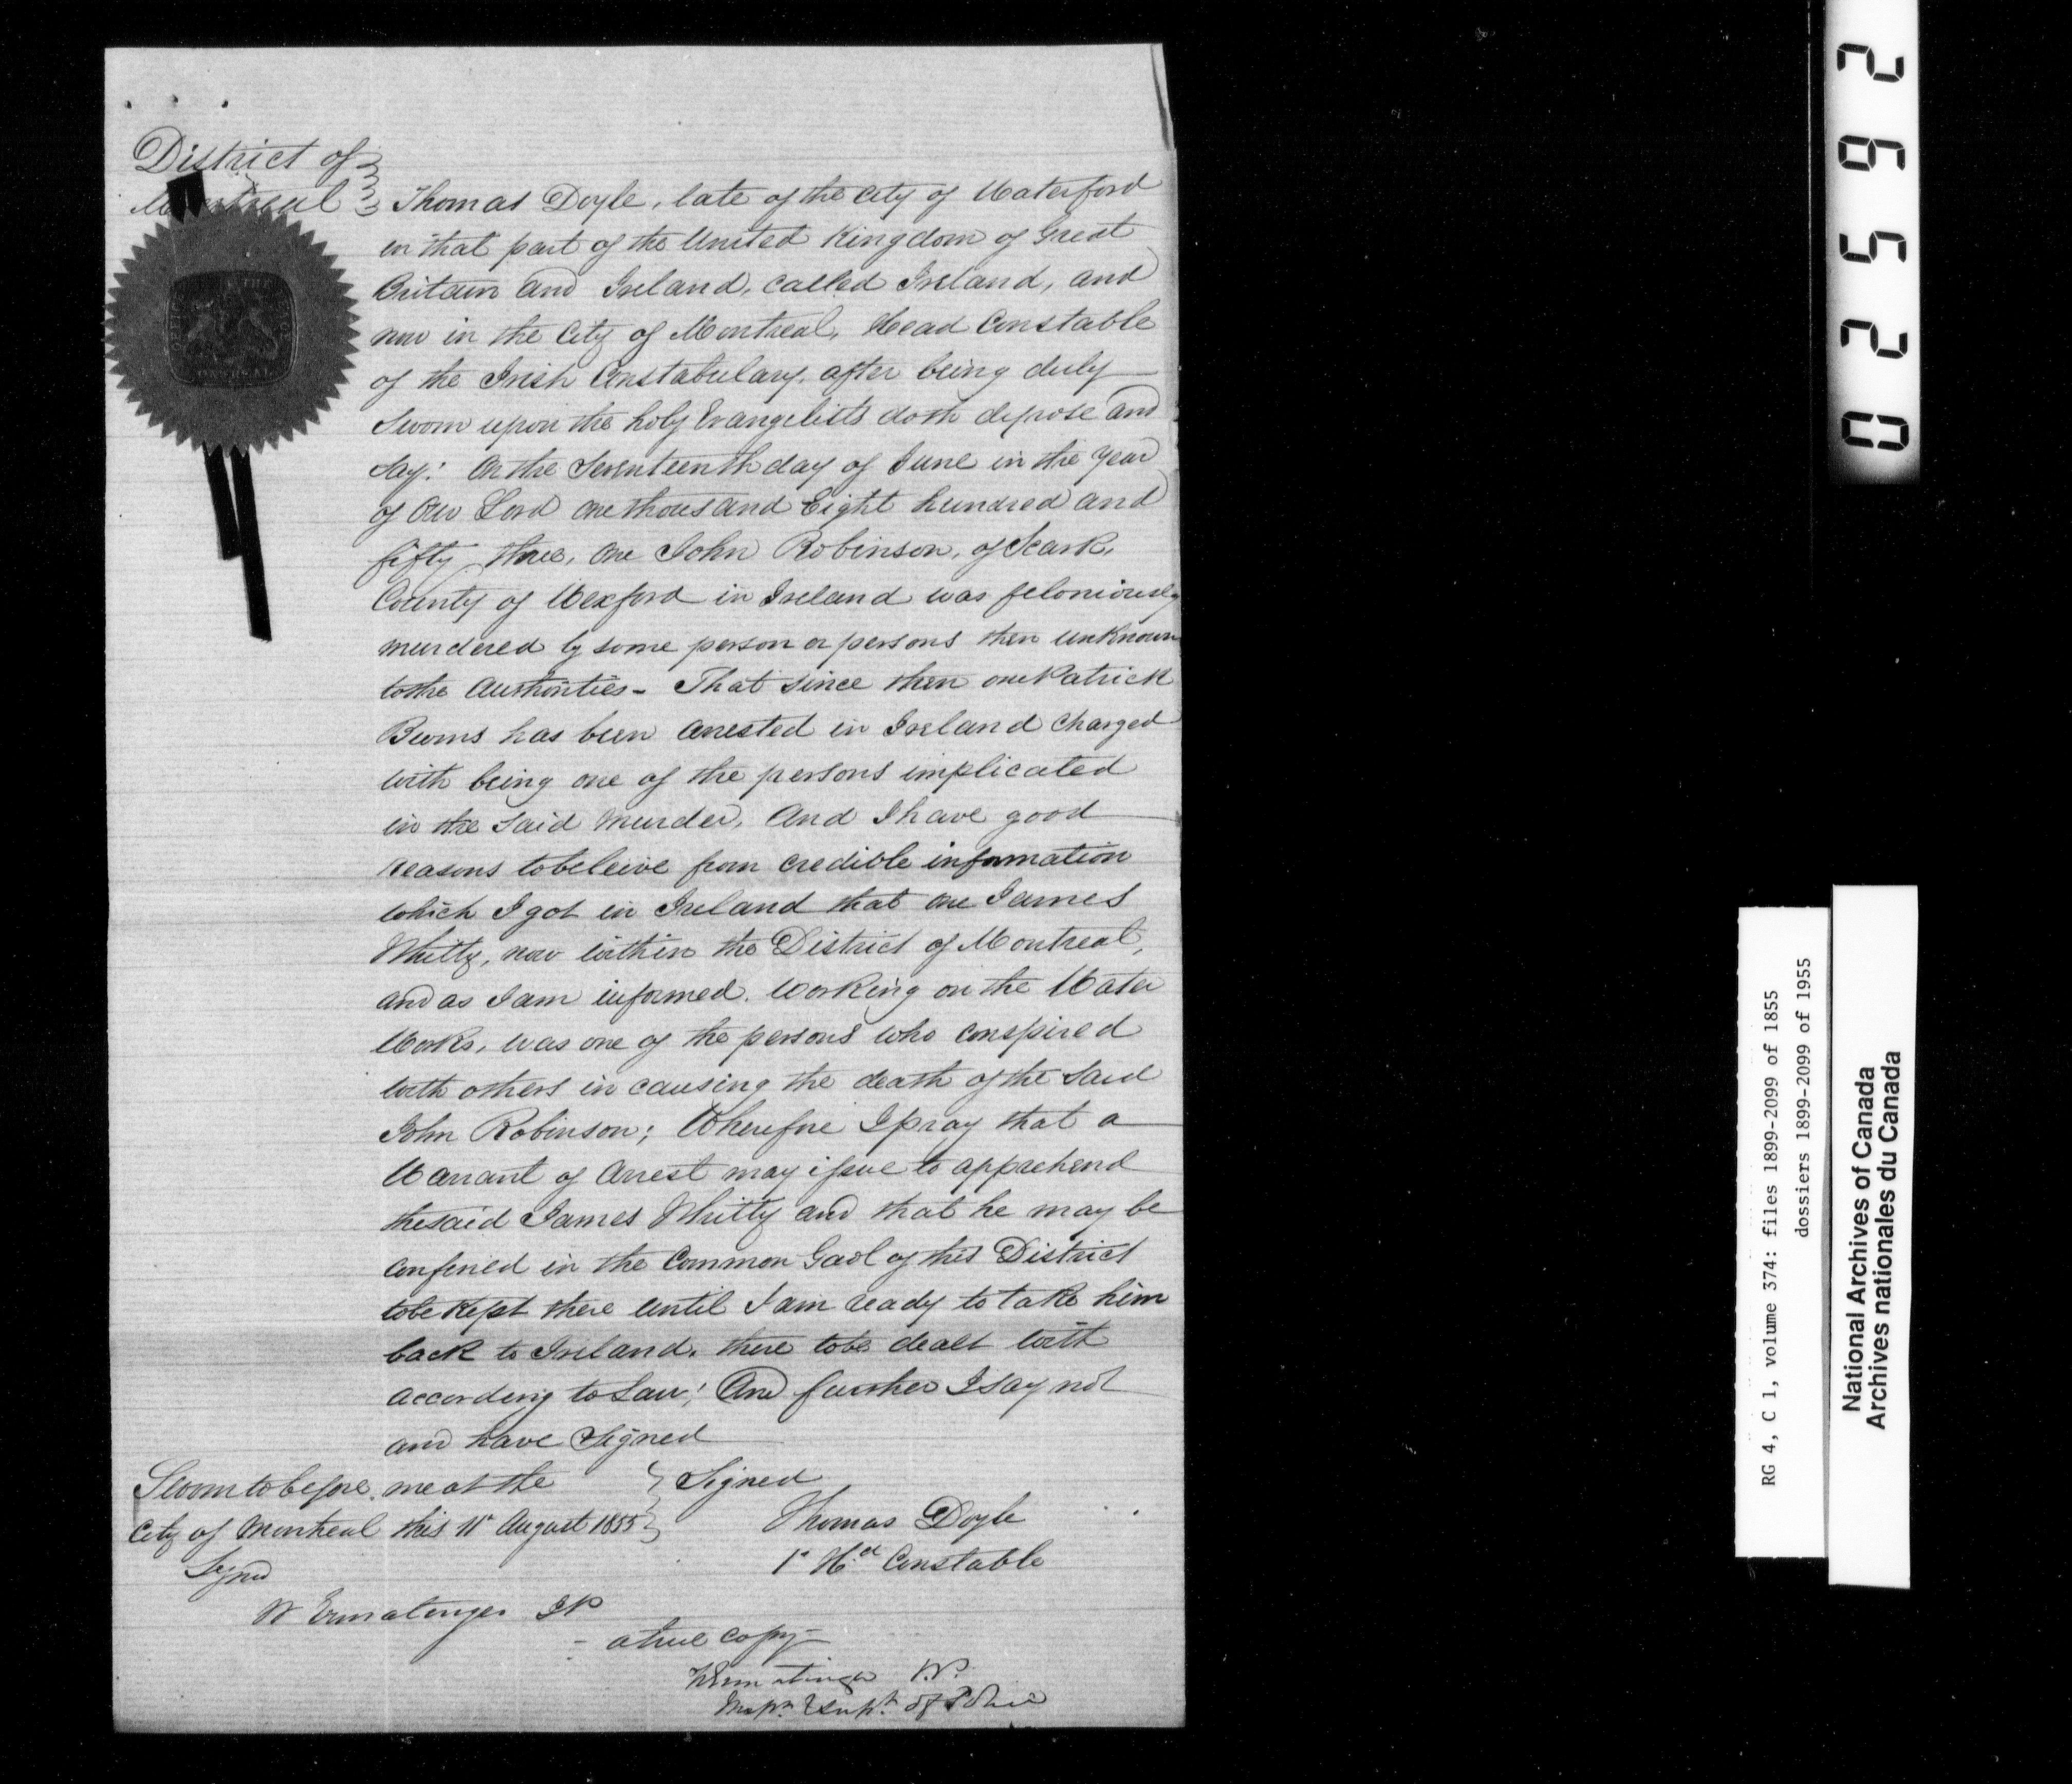 District of
Montreal Thomas Doyle, late of the City of Waterford
in that part of the United Kingdom of Great
Britain and Ireland, called Ireland, and
now in the City of Montreal, Head Constable
of the Irish Constabulary, after being duly
Sworn upon the holy Evangelists doth depose and
Say: On the Seventeenth day of June in the year
of Our Lord one thousand Eight hundred and
fifty three, one John Robinson, of Scark,
County of Wexford in Ireland was feloniously
murdered by some person or persons then unknown
to the Authorities - That since then one Patrick
Burns has been arrested in Ireland Charged
with being one of the persons implicated
in the said Murder, And I have good
reasons to beleive from credible information
which I got in Ireland that one James
Whitty, now within the District of Montreal,
and as I am informed, working on the Water
Works, was one of the persons who conspired
with others in causing the death of the said
John Robinson; Wherefore I pray that a
Warrant of Arrest may issue to apprehend
the said James Whitty and that he may be
confined in the Common Gaol of this District
to be kept there until I am ready to take him
back to Ireland, there to be dealt with
according to Law; And further I say not
and have Signed
Sworn to before me at the Signed
City of Montreal this 11th August 1855 Thomas Doyle
Signed 1st Hd Constable
W Ermatinger JP
- a true copy -
W Ermatinger J.P.
Inspr & Supt of Police
02592
RG 4, C 1, volume 374: files 1899-2099 of 1855
dossiers 1899-2099 of 1955
National Archives of Canada
Archives nationales du Canada